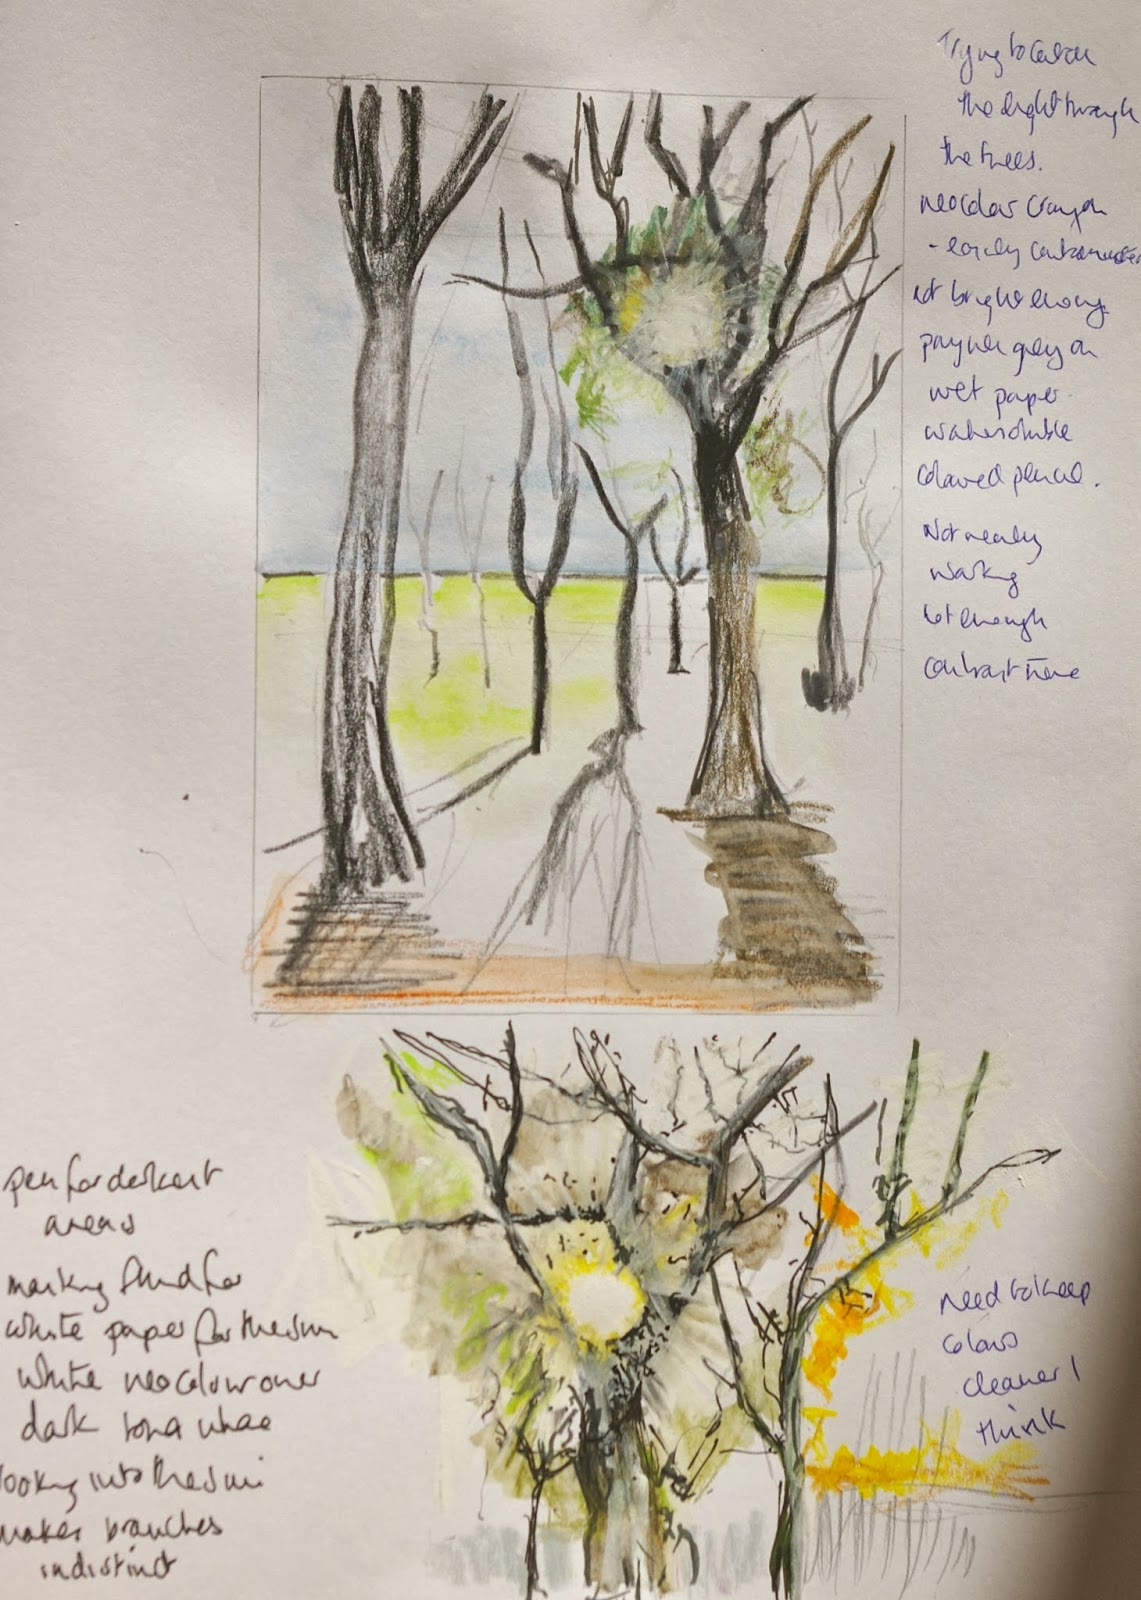 Trying to capture
the light through
the trees.
neocolour crayon
- easily contaminated
not bright enough
paynes grey on
wet paper.
watersoluble
coloured pencil.
Not really
working
not enough
contrast
pen for darkest
areas
masking fluid for
white paper for the sun
white neocolour over
dark tone where
looking into the sun
makes branches
indistinct
need to keep
colours
cleaner I
think